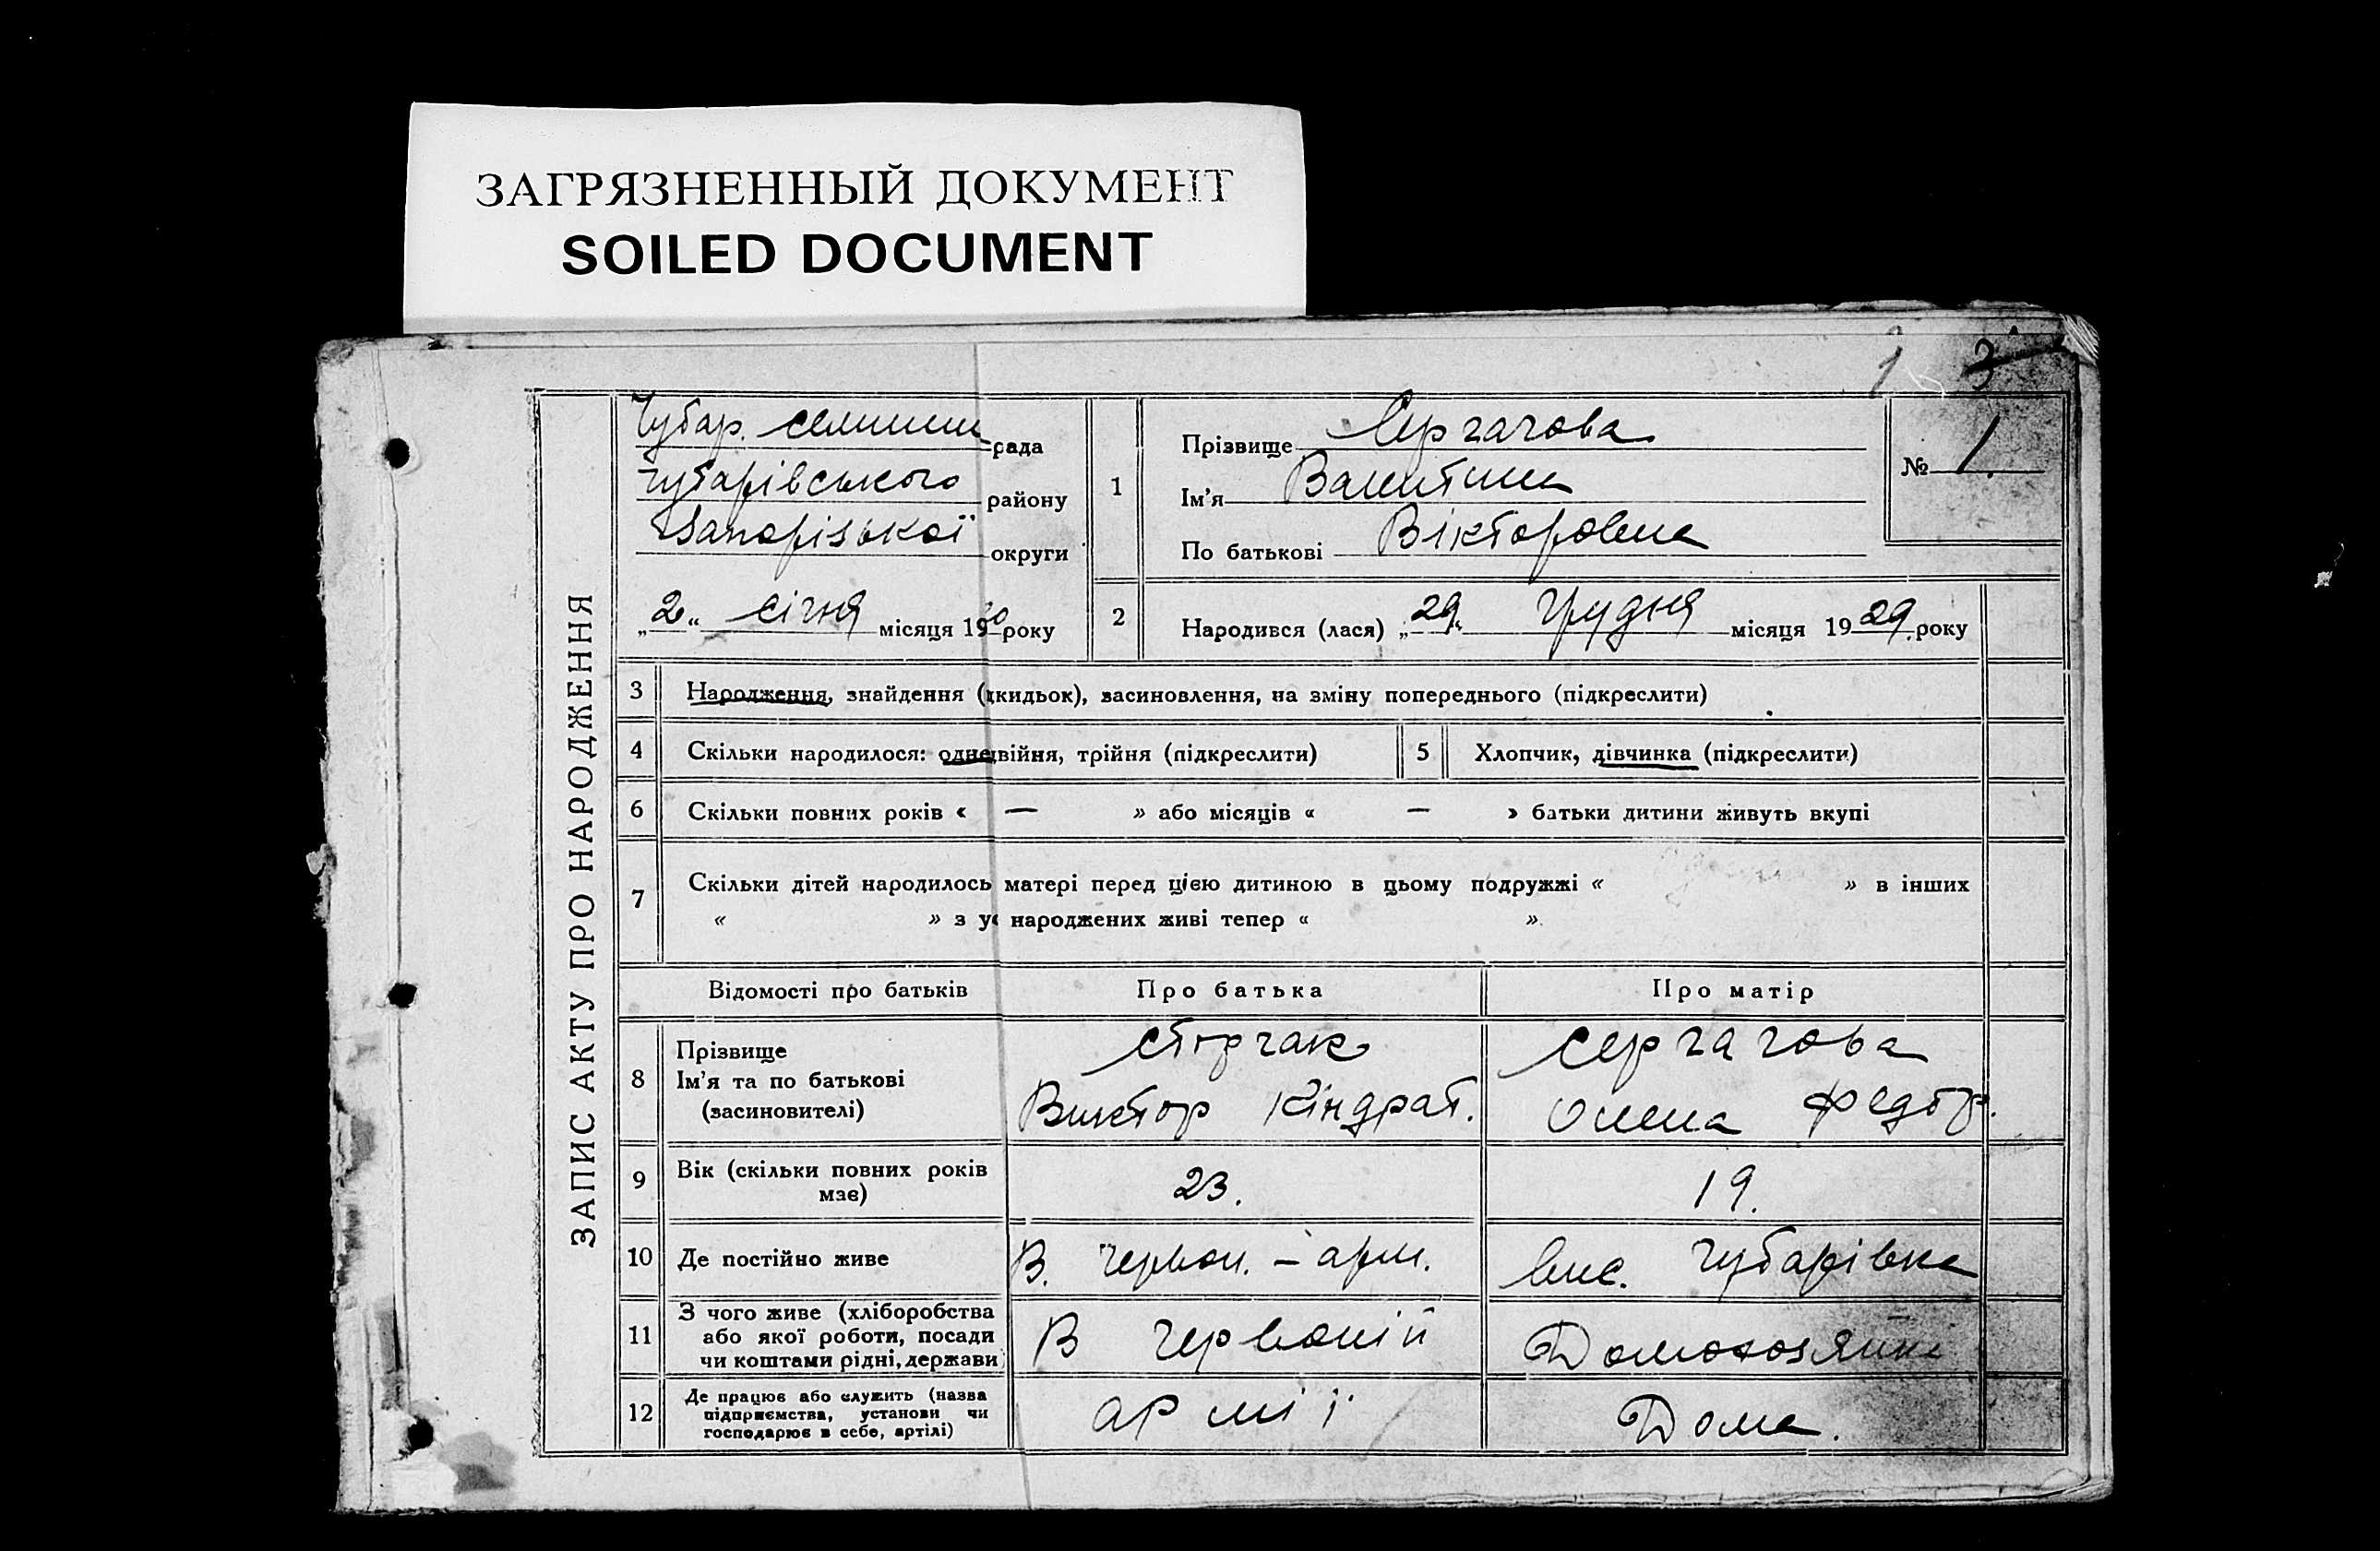 ЗАГРЯЗНЕННЫЙ ДОКУМЕНТ
SOILED DOCUMENT
1 3
ЗАПИС АКТУ ПРО НАРОДЖЕННЯ
Чубар. селищн рада
Чубарівського району
Запорізької округи
„2“ січня місяця 1930 року
1
Прізвище Сергачова
Ім’я Валентина
По батькові Вікторовна
№ 1.
2 Народився (лася) „29“ грудня місяця 1929 року
3 Народження, знайдення ( кидьок), засиновлення, на зміну попереднього (підкреслити)
4 Скільки народилося: одне війня, трійня (підкреслити) 5 Хлопчик, дівчинка (підкреслити)
6 Скільки повних років « — » або місяців « — » батьки дитини живуть вкупі
7 Скільки дітей народилось матері перед цією дитиною в цьому подружжі « » в інших
« » з ус народжених живі тепер « ».
Відомості про батьків Про батька Про матір
8 Прізвище
Ім’я та по батькові
(засновителі)
Сторчак Сергачова
Виктор Кіндрат. Олена Федор.
9 Вік (скільки повних років
має)
23. 19.
10 Де постійно живе В. червон. – арм. Чубарівка
11 З чого живе (хліборобства
або якої роботи, посади
чи коштами рідні, держави)
В червоній Домохозяйкі
12 Де працює або служить (назва
підприємства, установи чи
господарює в себе, артілі)
армії Дома.